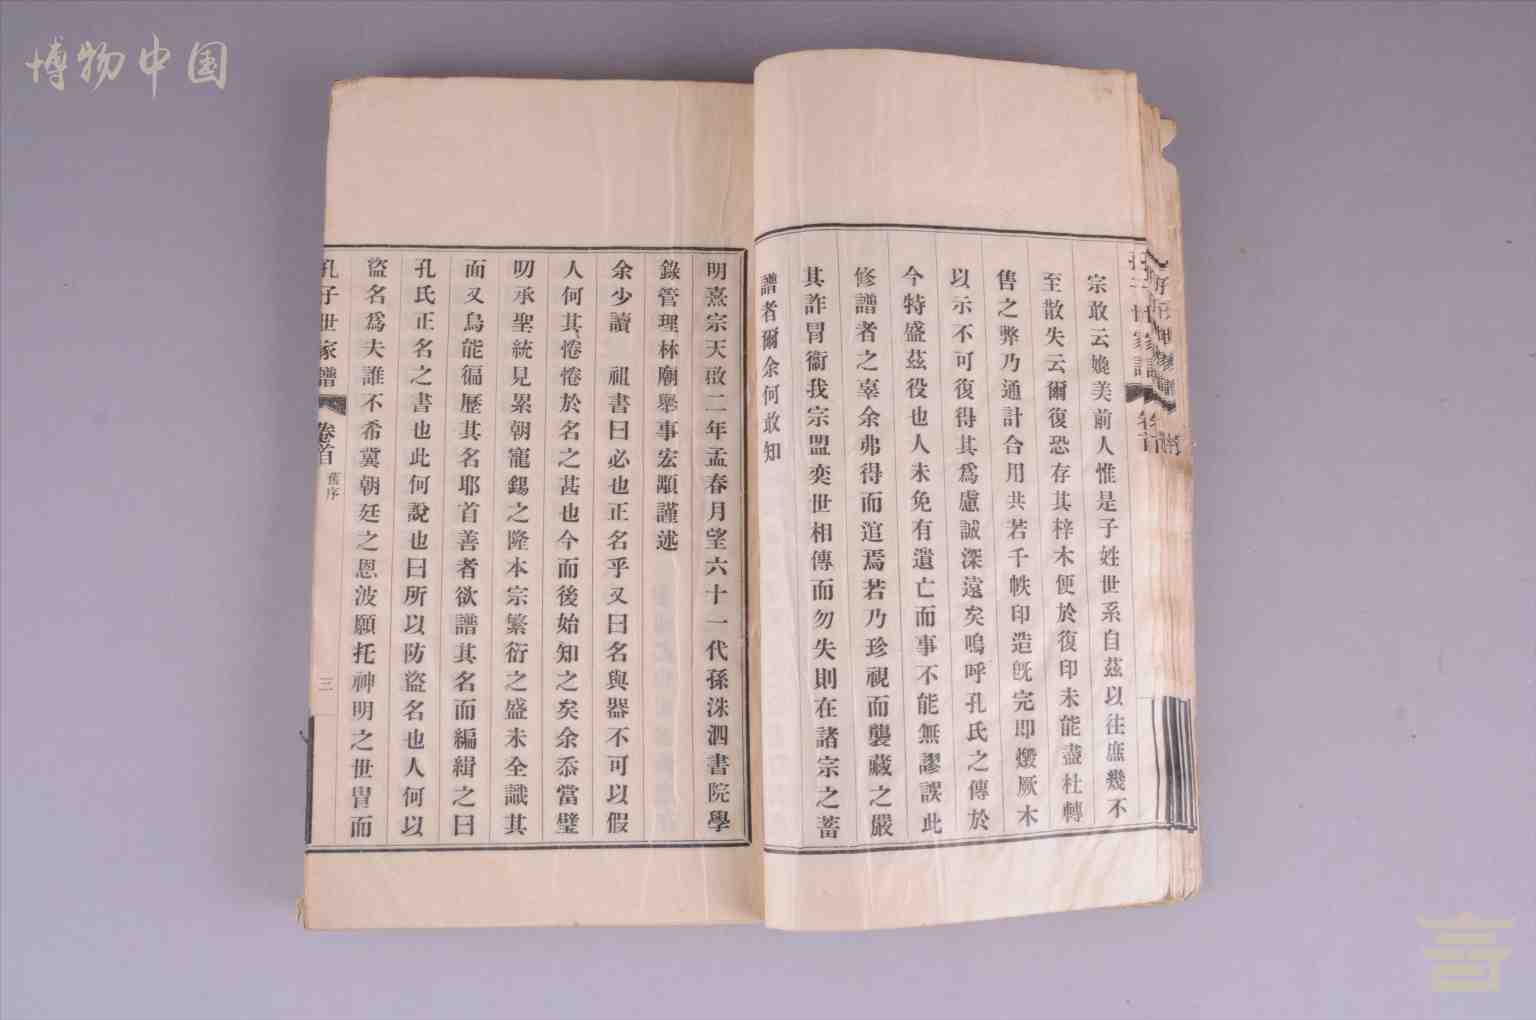 博物中国
宗敢云媲美前人惟是子姓世系自茲以往庶幾不
至散失云爾復恐存其梓木便於復印未能盡杜轉
售之弊乃通計合用共若干帙印造旣完即燬厥木
以示不可復得其爲慮誠深遠矣嗚呼孔氏之傳於
今特盛茲役也人未免有遺亡而事不能無謬誤此
修譜者之辜余弗得而逭焉若乃珍視而襲藏之嚴
其詐冒衞我宗盟奕世相傳而勿失則在諸宗之蓄
譜者爾余何敢知
明熹宗天啟二年孟春月望六十一代孫洙泗書院學
錄管理林廟舉事宏顒謹述
余少讀 祖書曰必也正名乎又曰名與器不可以假
人何其惓惓於名之甚也今而後始知之矣余忝當璧
叨承聖統見累朝寵錫之隆本宗繁衍之盛未全識其
面又烏能徧歷其名耶首善者欲譜其名而編緝之曰
孔氏正名之書也此何說也曰所以防盜名也人何以
盜名爲夫誰不希冀朝廷之恩波願托神明之世冑而
孔子世家譜 卷首 舊序 三